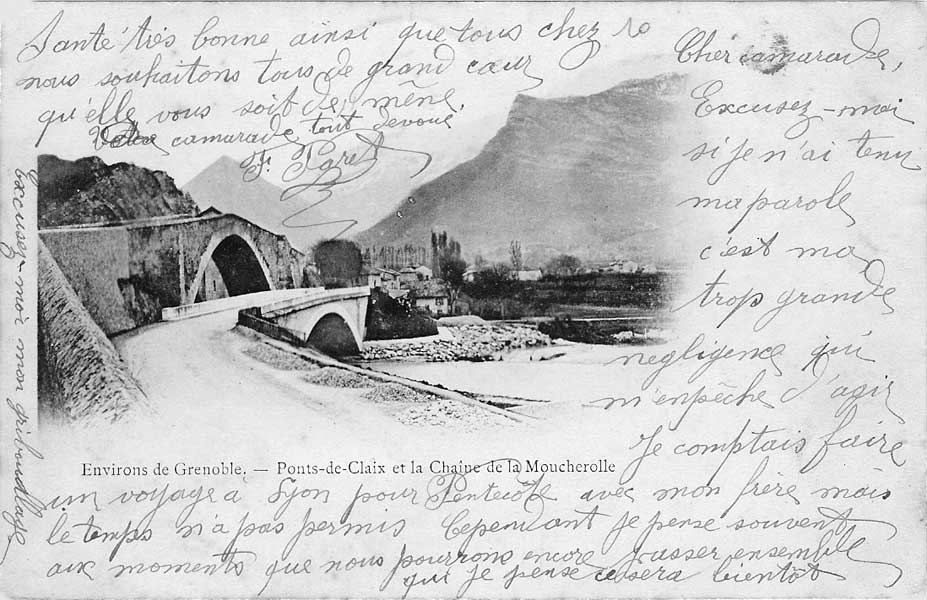 Cher camarade,
Excusez-moi
si je n'ai tenu
ma parole
c'est ma
trop grande
négligence qui
m'enpêche d'agir
Je comptais faire
un voyage à Lyon pour Pentecôte avec mon frère mais
le temps n'a pas permis Cependant je pense souvent
aux moments que nous pourrons encore passer ensemble
que je pense ce sera bientôt
Santé très bonne ainsi que tous chez
nous souhaitons tous de grand cœur
qu'elle vous soit de même,
Votre camarade tout dévoué
F. Paret
Excusez-moi mon gribouillage
Environs de Grenoble. — Ponts-de-Claix et la Chaîne de la Moucherolle